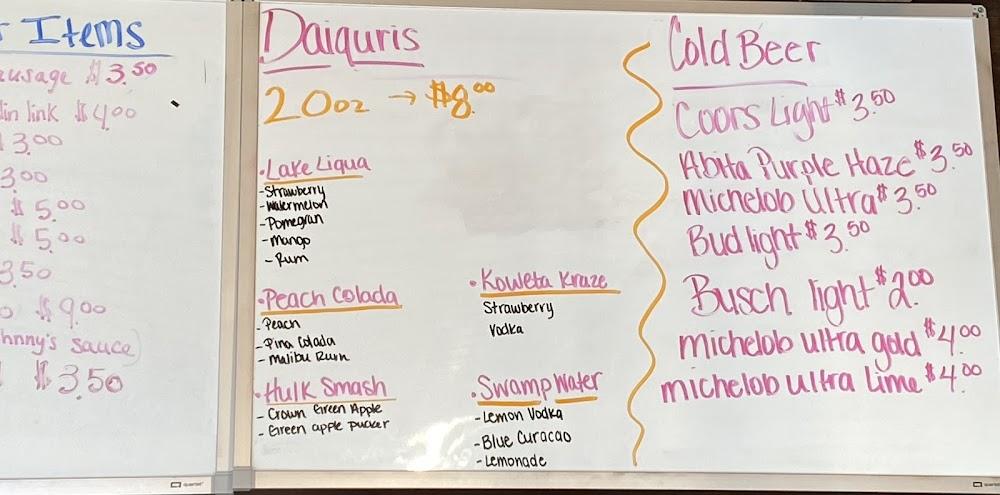 Items
usage $3.50
link $4.00
3.00
3.00
$5.00
$5.00
3.50
$9.00
hnny's sauce)
$3.50
Daiquris
20oz → $8.00
•Lake Liqua
-Strawberry
-Watermelon
-Pomegran
-Mango
-Rum
•Peach Colada
-Peach
-Pina Colada
-Malibu Rum
•Hulk Smash
-Crown Green Apple
-Green apple pucker
•Koweta Kraze
Strawberry
Vodka
•Swamp Water
-Lemon Vodka
-Blue Curacao
-Lemonade
Cold Beer
Coors Light $3.50
Abita Purple Haze $3.50
Michelob Ultra $3.50
Bud light $3.50
Busch light $2.00
michelob ultra gold $4.00
michelob ultra Lime $4.00